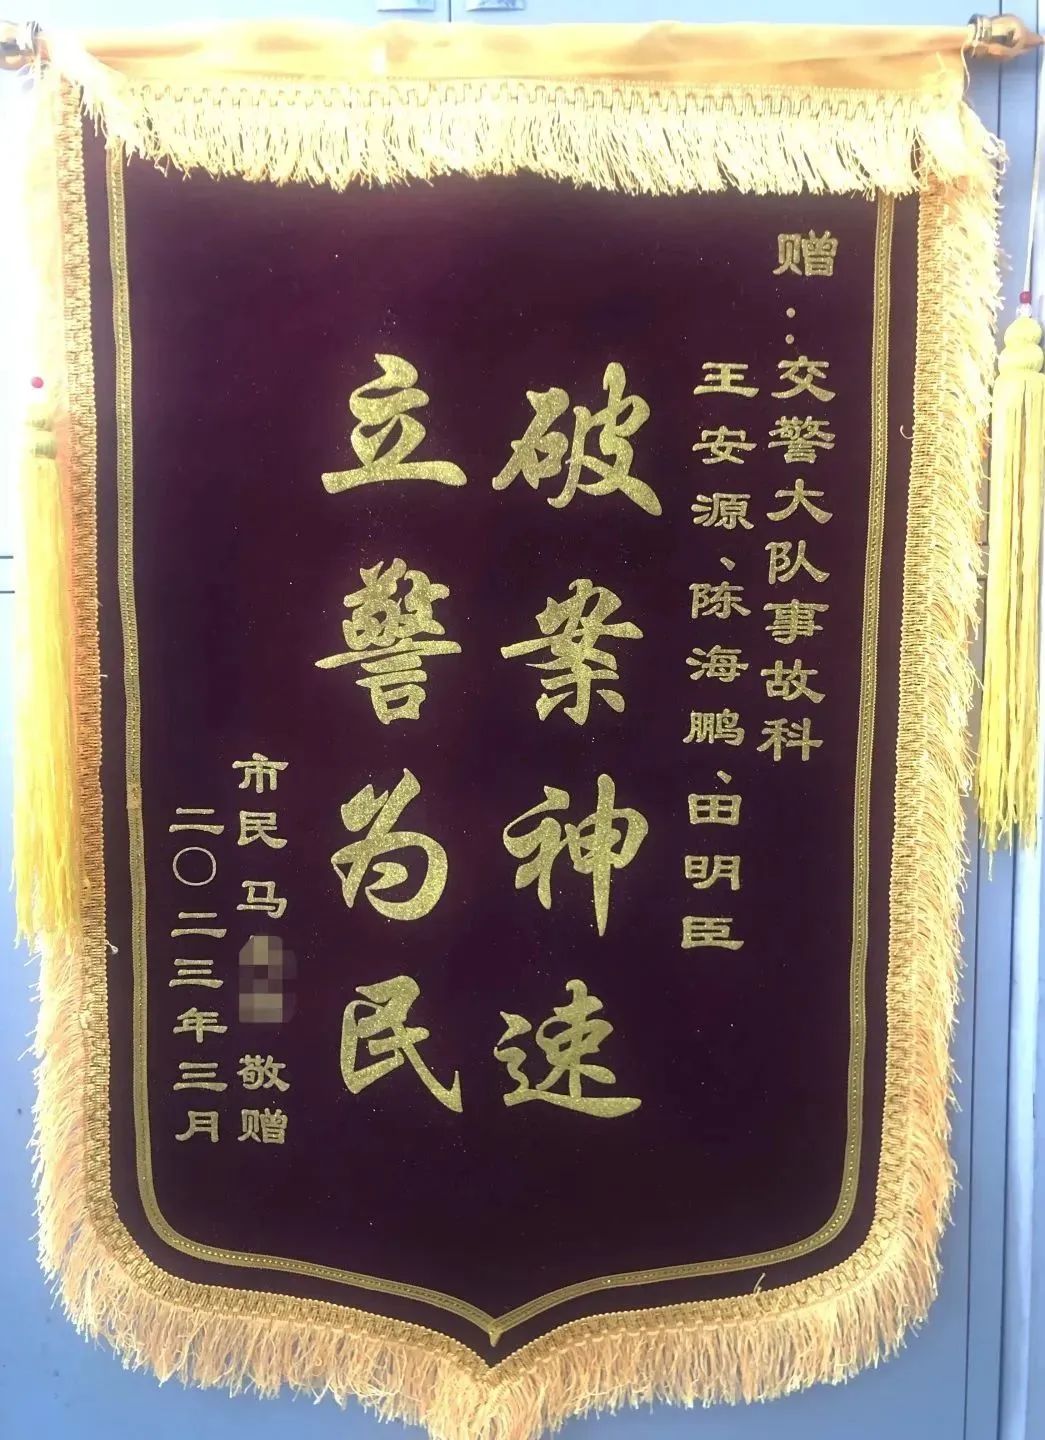 赠：交警大队事故科
王安源、陈海鹏、田明臣
破案神速
立警为民
市民马 敬赠
二〇二三年三月